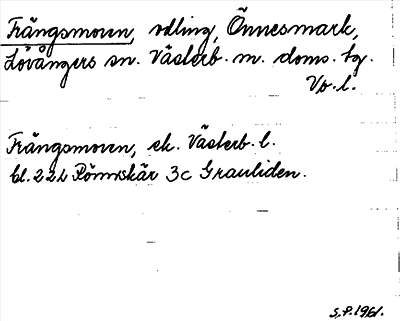 Trängsmoren, odling, Önnesmark,
Lövångers sn. Västerb. m. doms. tg.
Vb. l.
Trängsmoren, ek. Västerb. l.
bl. 22L Rönnskär 3c Grauliden.
S.P. 1961.